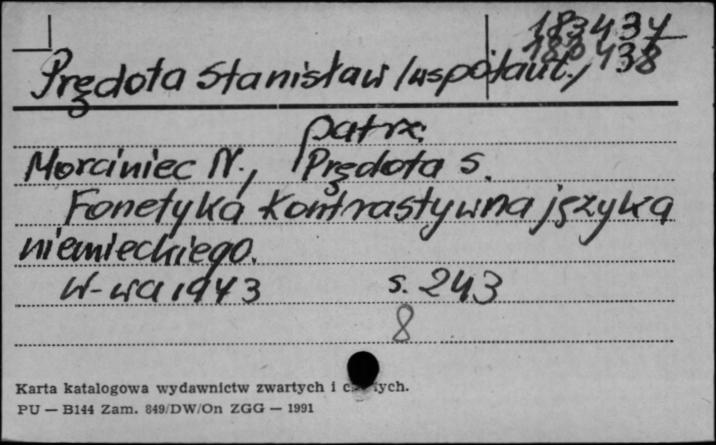 183437
180438
Prędota Stanisław /współaut./
patrz:
Morciniec N., Prędota S.
Fonetyka kontrastywna języka
niemieckiego.
W-wa 1943 s. 243
8
Karta katalogowa wydawnictw zwartych i ciągłych.
PU — B144 Zam. 849/DW/On ZGG — 1991